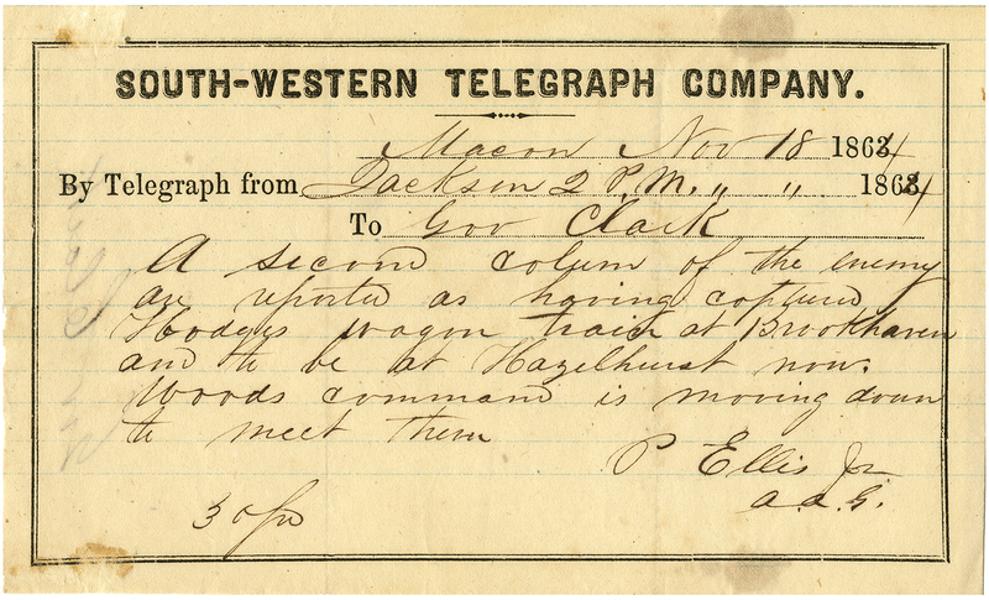 SOUTH-WESTERN TELEGRAPH COMPANY.
Macon Nov 18 1864
By Telegraph from Jackson 2 P.M. " " 1864
To Gov Clark
A second colum of the enemy
are reported as having captured
Hodges wagon train at Brookhaven
and to be at Hazelhurst now.
Woods command is moving down
to meet them
P Ellis Jr
a.a.G.
30